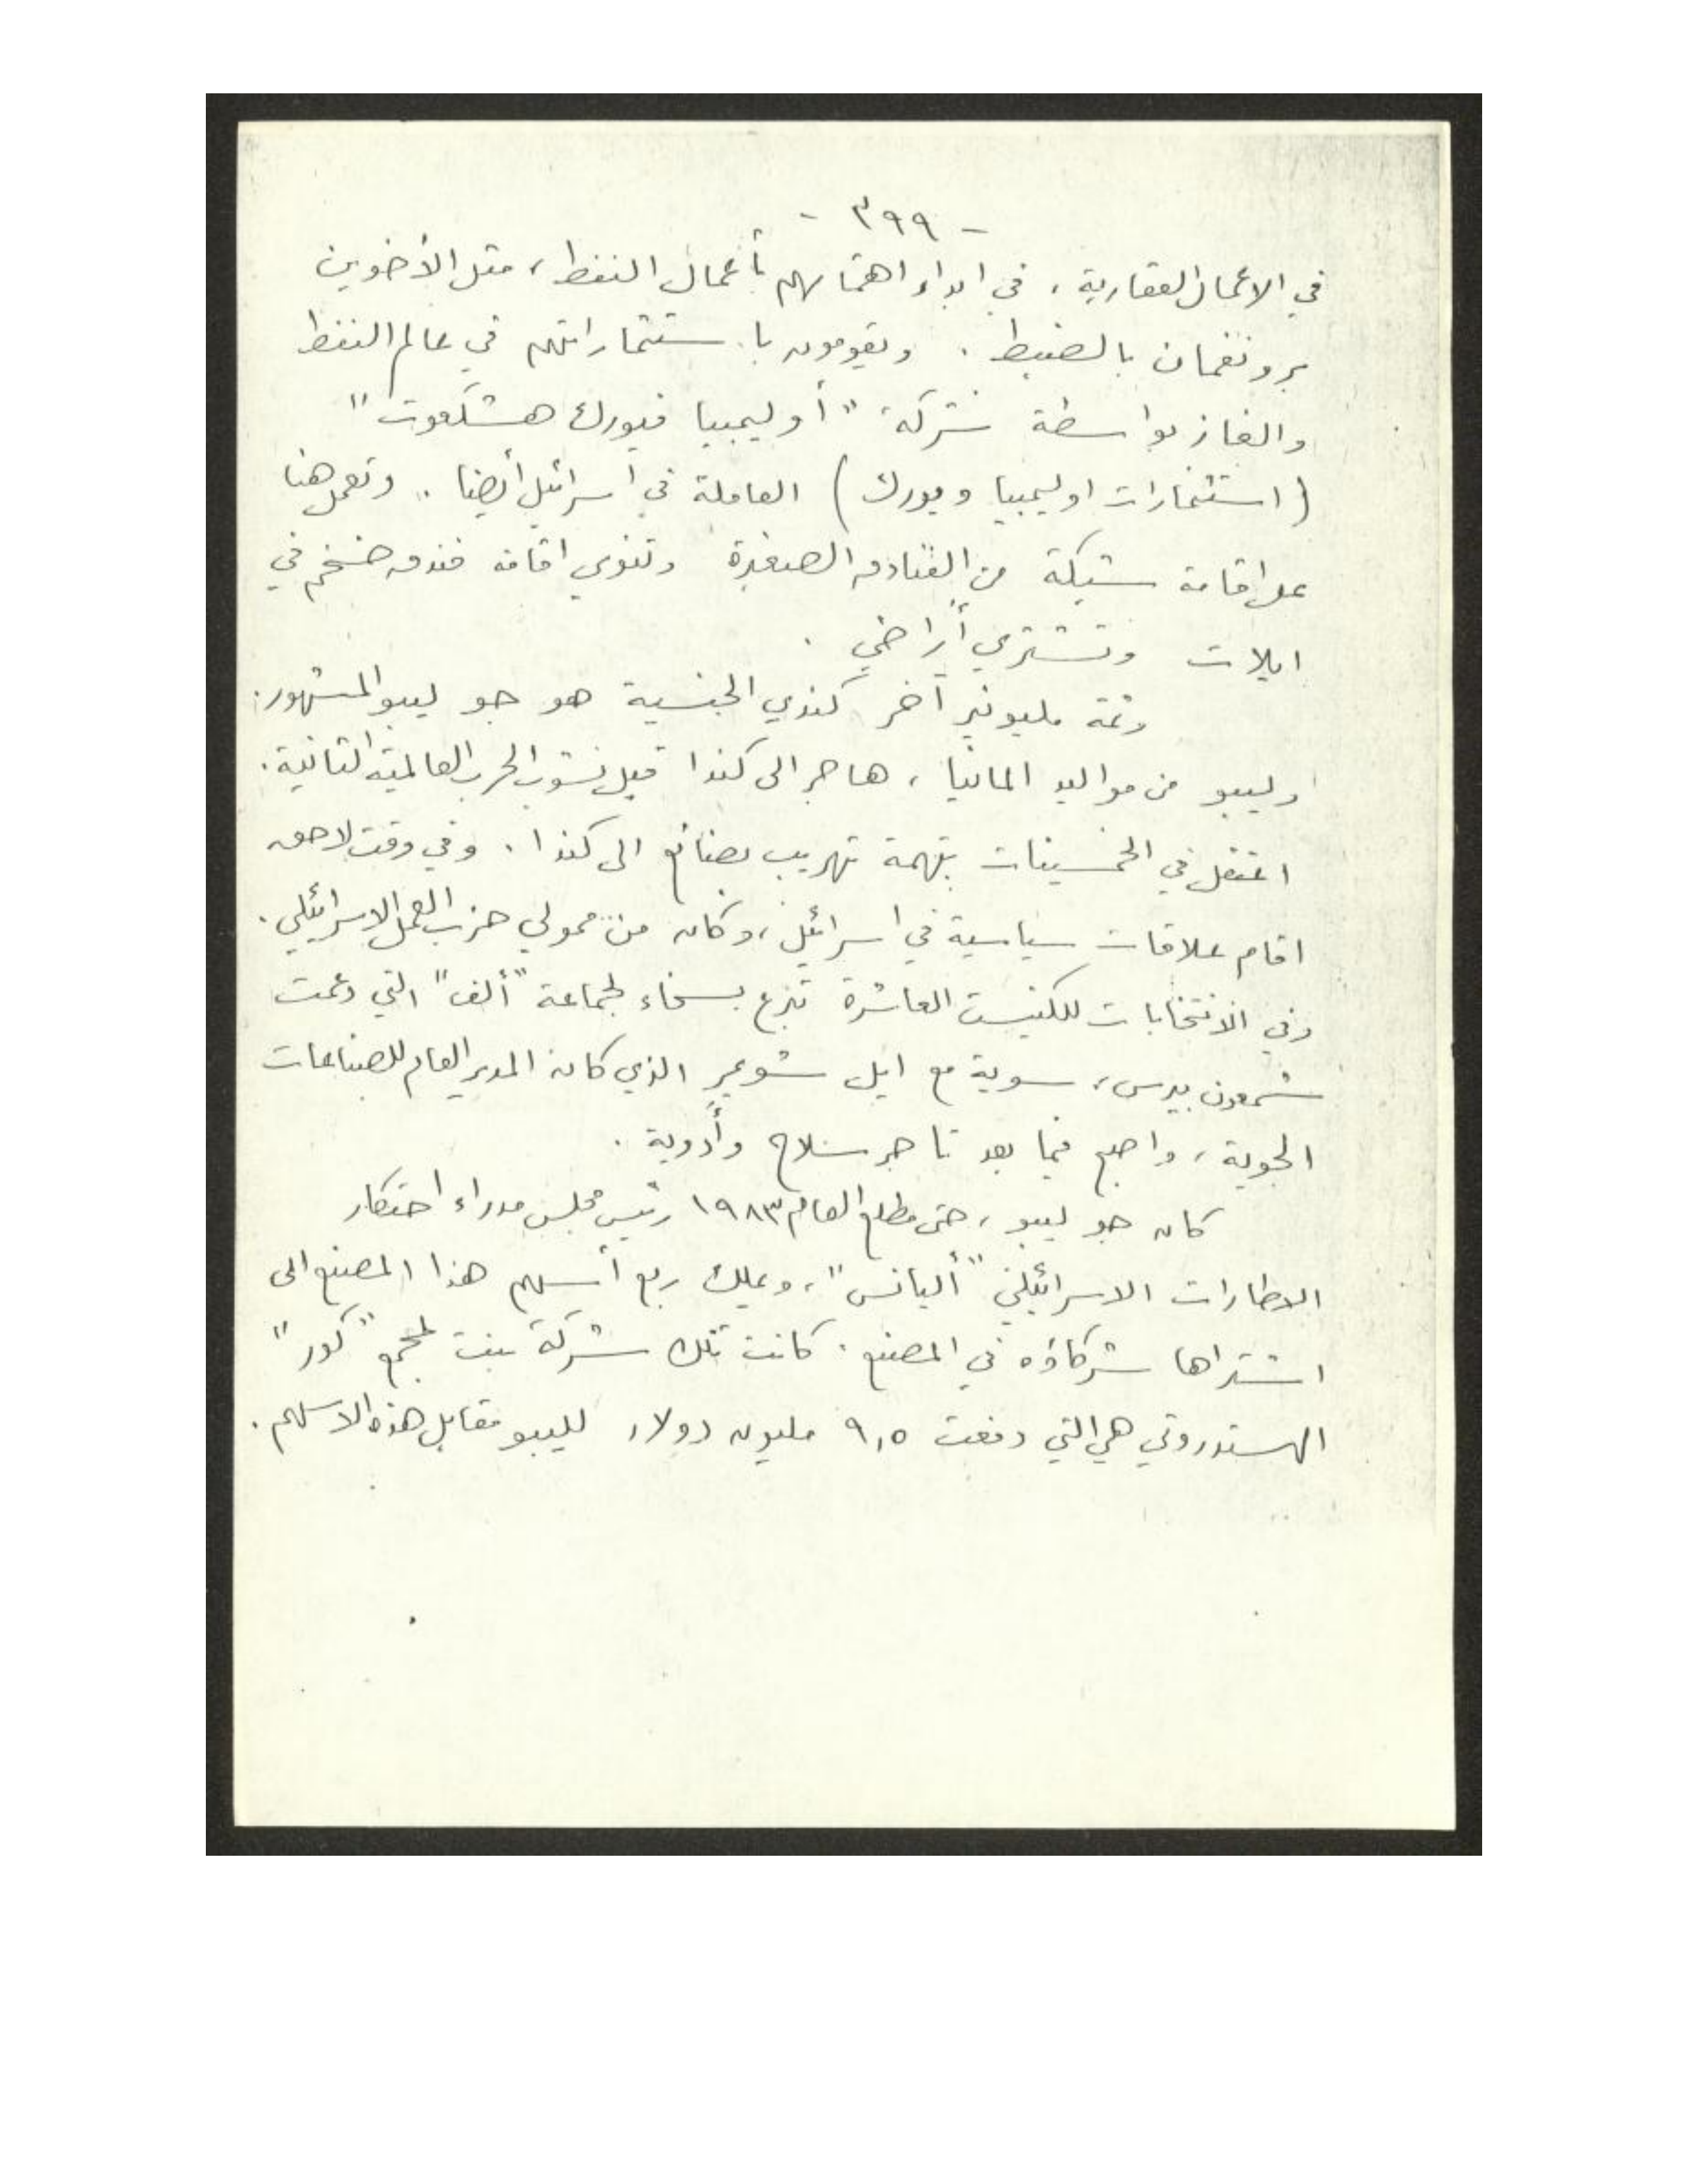 - ٣٩٩ -
في الاعمال العقارية ، في ابداء اهتمامهم بأعمال النفط ، مثل الأخوين
برونفمان بالضبط . ويقومون باستثماراتهم في عالم النفط
والغاز بواسطة شركة "أوليمبيا فيورك هشكعوت"
(استثمارات اوليمبيا ويورك) العاملة في اسرائيل أيضا . وتعمل هنا
على اقامة شبكة من الفنادق الصغيرة وتنوي اقامة فندق ضخم في
ايلات وتشتري أراضي .
وثمة مليونير آخر كندي الجنسية هو جو ليبو المشهور.
وليبو من مواليد المانيا ، هاجر الى كندا قبل نشوب الحرب العالمية الثانية.
اعتقل في الخمسينات بتهمة تهريب بضائع الى كندا . وفي وقت لاحق
اقام علاقات سياسية في اسرائيل ، وكان من ممولي حزب العمل الاسرائيلي .
وفي الانتخابات للكنيست العاشرة تبرع بسخاء لجماعة "ألف" التي دعمت
شمعون بيرس ، سوية مع ايل شويمر الذي كان المدير العام للصناعات
الجوية ، واصبح فيما بعد تاجر سلاح وأدوية .
كان جو ليبو ، حتى مطلع العام ١٩٨٣ رئيس مجلس مدراء احتكار
الاطارات الاسرائيلي "أليانس" ، ويملك ربع أسهم هذا المصنع الى
اشتراها شركاؤه في المصنع . كانت تلك شركة بنت لمجمع "كور"
الهستدروتي هي التي دفعت ٩,٥ مليون دولار لليبو مقابل هذه الاسهم .